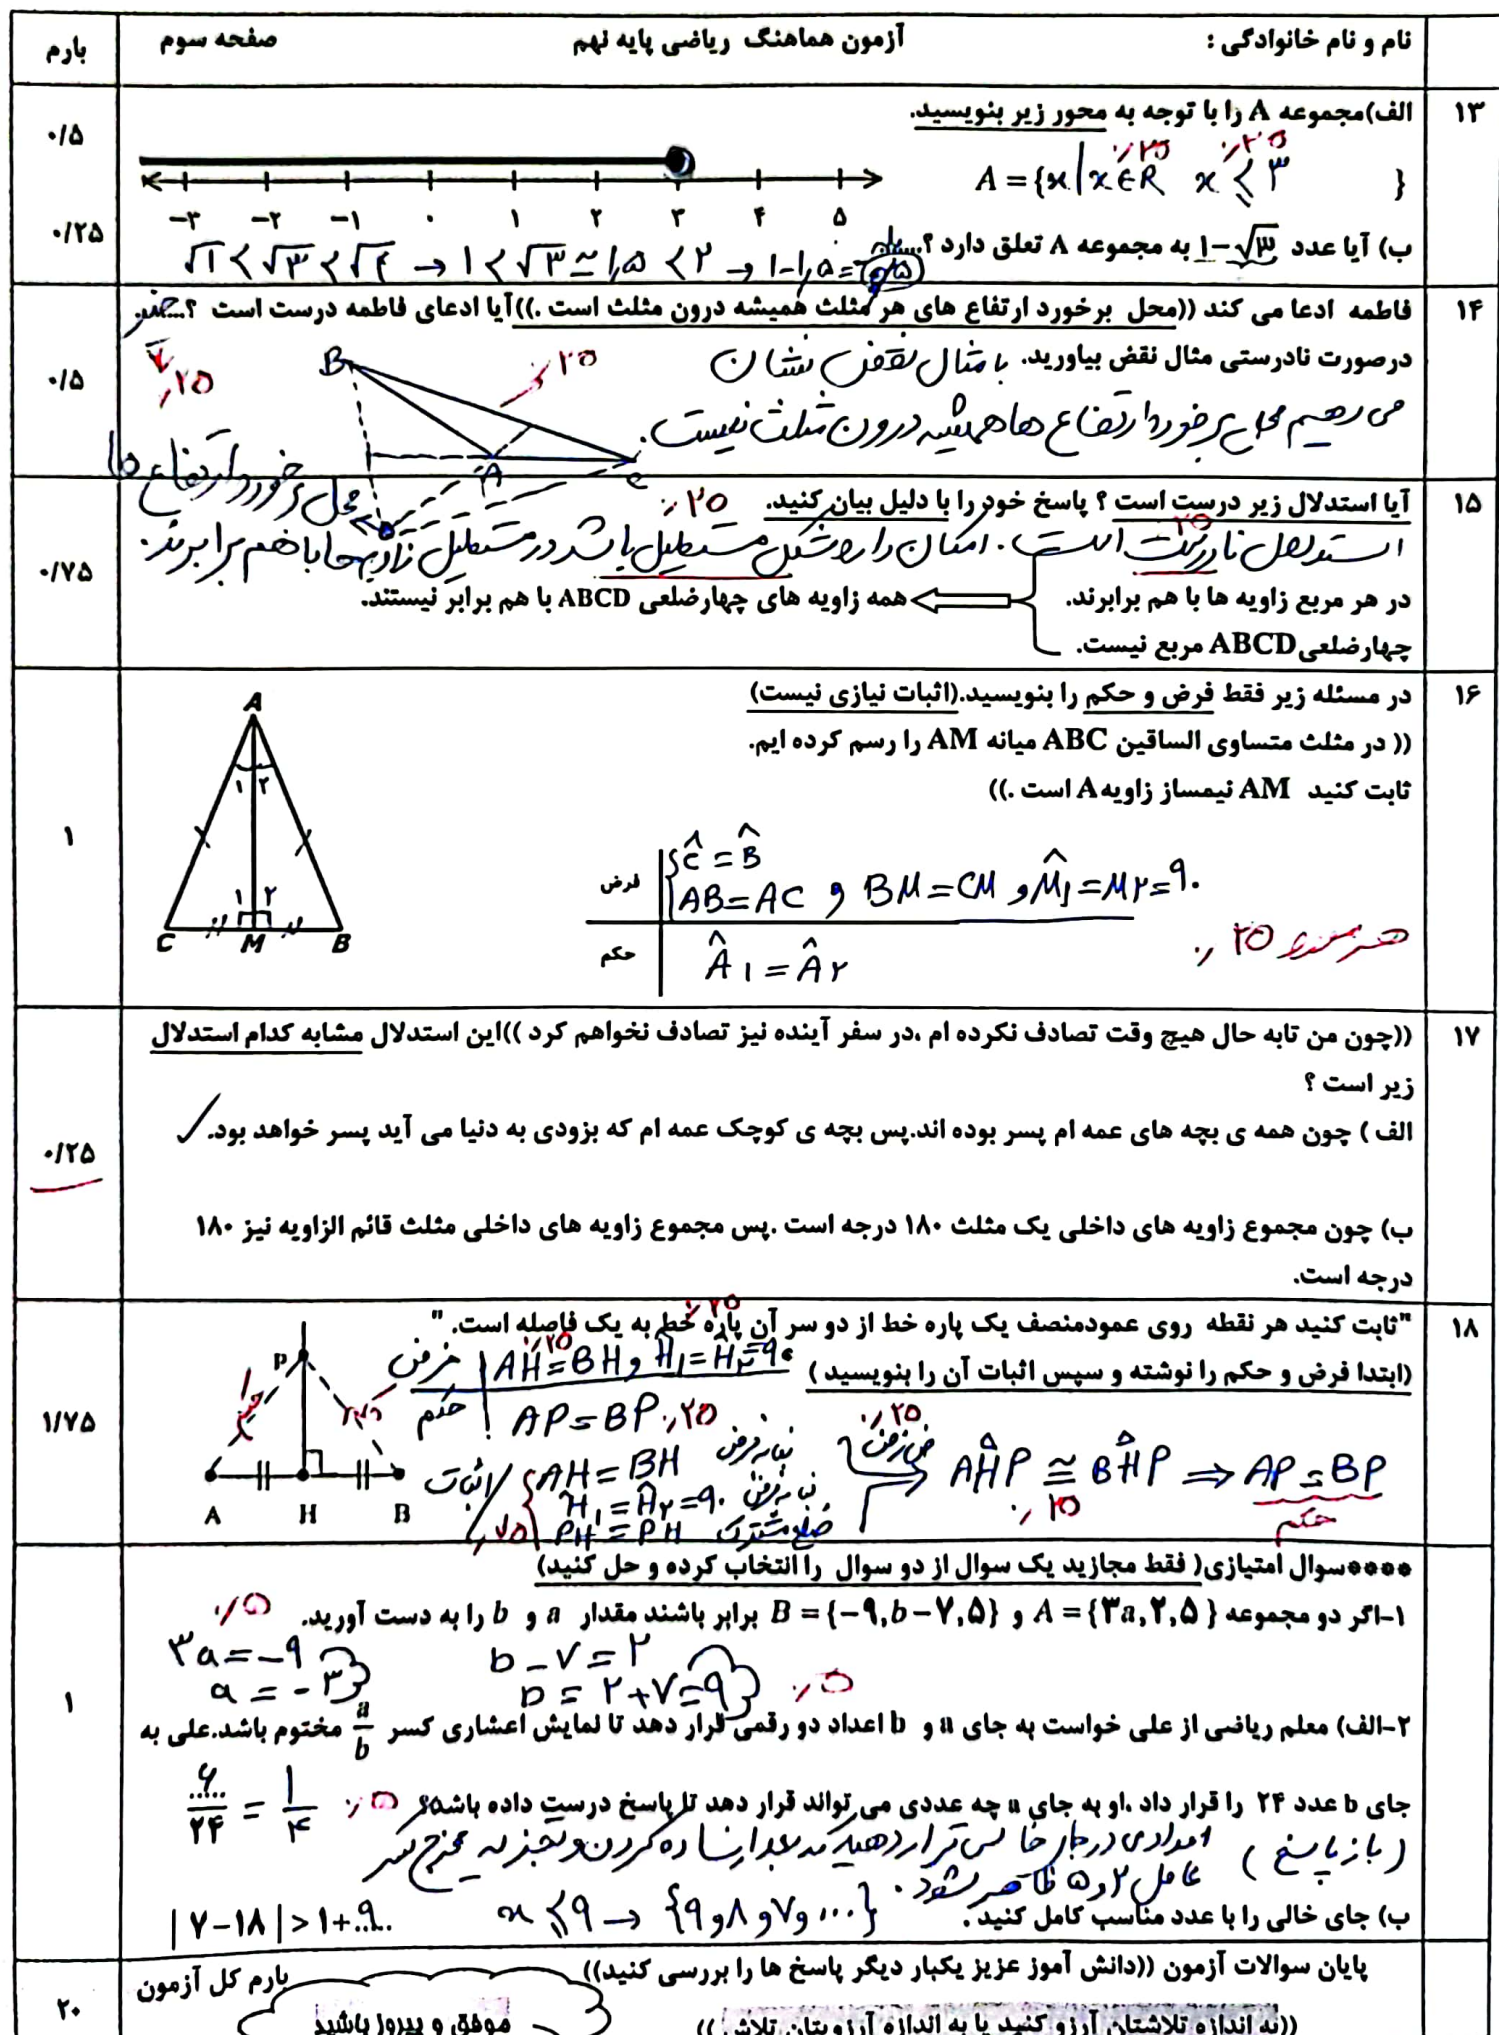 نام و نام خانوادگی : آزمون هماهنگ ریاضی پایه نهم صفحه سوم بارم
۱۳ الف)مجموعه A را با توجه به محور زیر بنویسید. ۰/۵
A = {x | x ∈ R x ⩽ ۳ }
۰/۲۵ ۰/۲۵
−۳ −۲ −۱ ۰ ۱ ۲ ۳ ۴ ۵
ب) آیا عدد ۱−√۳ به مجموعه A تعلق دارد ؟ بله ۰/۲۵
√۱ < √۳ < √۴ → ۱ < √۳ ≃ ۱٫۵ < ۲ → ۱−۱٫۵ =
۱۴ فاطمه ادعا می کند ((محل برخورد ارتفاع های هر مثلث همیشه درون مثلث است .))آیا ادعای فاطمه درست است ؟ خیر ۰/۵
درصورت نادرستی مثال نقض بیاورید. با مثال نقض نشان
می دهیم محل برخورد ارتفاع ها همیشه درون مثلث نیست.
B A C ۰/۲۵ ۰/۲۵
محل برخورد ارتفاع ها
۱۵ آیا استدلال زیر درست است ؟ پاسخ خود را با دلیل بیان کنید. ۰/۲۵ ۰/۷۵
استدلال نادرست است . امکان دارد شکل مستطیل باشد در مستطیل زاویه ها با هم برابرند.
در هر مربع زاویه ها با هم برابرند. همه زاویه های چهارضلعی ABCD با هم برابر نیستند.
چهارضلعی ABCD مربع نیست.
۱۶ در مسئله زیر فقط فرض و حکم را بنویسید.(اثبات نیازی نیست) ۱
(( در مثلث متساوی الساقین ABC میانه AM را رسم کرده ایم.
ثابت کنید AM نیمساز زاویه A است .))
A ۱ ۲ ۱ ۲ C M B
فرض Ĉ = B̂
AB = AC و BM = CM و M̂۱ = M۲ = ۹۰
حکم Â۱ = Â۲
هر مورد ۰/۲۵
۱۷ ((چون من تابه حال هیچ وقت تصادف نکرده ام ،در سفر آینده نیز تصادف نخواهم کرد ))این استدلال مشابه کدام استدلال
زیر است ؟
الف ) چون همه ی بچه های عمه ام پسر بوده اند.پس بچه ی کوچک عمه ام که بزودی به دنیا می آید پسر خواهد بود. ✓ ۰/۲۵
ب) چون مجموع زاویه های داخلی یک مثلث ۱۸۰ درجه است .پس مجموع زاویه های داخلی مثلث قائم الزاویه نیز ۱۸۰
درجه است.
۱۸ "ثابت کنید هر نقطه روی عمودمنصف یک پاره خط از دو سر آن پاره خط به یک فاصله است. " ۱/۷۵
(ابتدا فرض و حکم را نوشته و سپس اثبات آن را بنویسید )
فرض AH = BH و Ĥ۱ = Ĥ۲ = ۹۰
حکم AP = BP ۰/۲۵
P A H B
اثبات AH = BH بنا به فرض
Ĥ۱ = Ĥ۲ = ۹۰ بنا به فرض
PH = PH ضلع مشترک
ض ز ض AHP ≅ BHP ⇒ AP = BP
حکم
۰۰۰۰سوال امتیازی( فقط مجازید یک سوال از دو سوال را انتخاب کرده و حل کنید)
۱-اگر دو مجموعه A = {۳a,۲,۵ } و B = {−۹,b−۷,۵} برابر باشند مقدار a و b را به دست آورید. ۰/۵
۳a = −۹ b − ۷ = ۲
a = −۳ b = ۲+۷=۹ ۰/۵
۱
۲-الف) معلم ریاضی از علی خواست به جای a و b اعداد دو رقمی قرار دهد تا نمایش اعشاری کسر a/b مختوم باشد.علی به
جای b عدد ۲۴ را قرار داد .او به جای a چه عددی می تواند قرار دهد تا پاسخ درست داده باشد؟ ۰/۵ ۶/۲۴ = ۱/۴
(باز پاسخ ) اعدادی در جای خالی قرار دهید که بعد از ساده کردن و تجزیه مخرج کسر
عامل ۲ و ۵ ظاهر شود .
ب) جای خالی را با عدد مناسب کامل کنید . x ⩽ ۹ → {۹ و ۸ و ۷ و ...} | ۷ − ۱۸ | > ۱+..۹..
پایان سوالات آزمون ((دانش آموز عزیز یکبار دیگر پاسخ ها را بررسی کنید)) بارم کل آزمون ۲۰
((به اندازه تلاشتان آرزو کنید یا به اندازه آرزویتان تلاش )) موفق و پیروز باشید